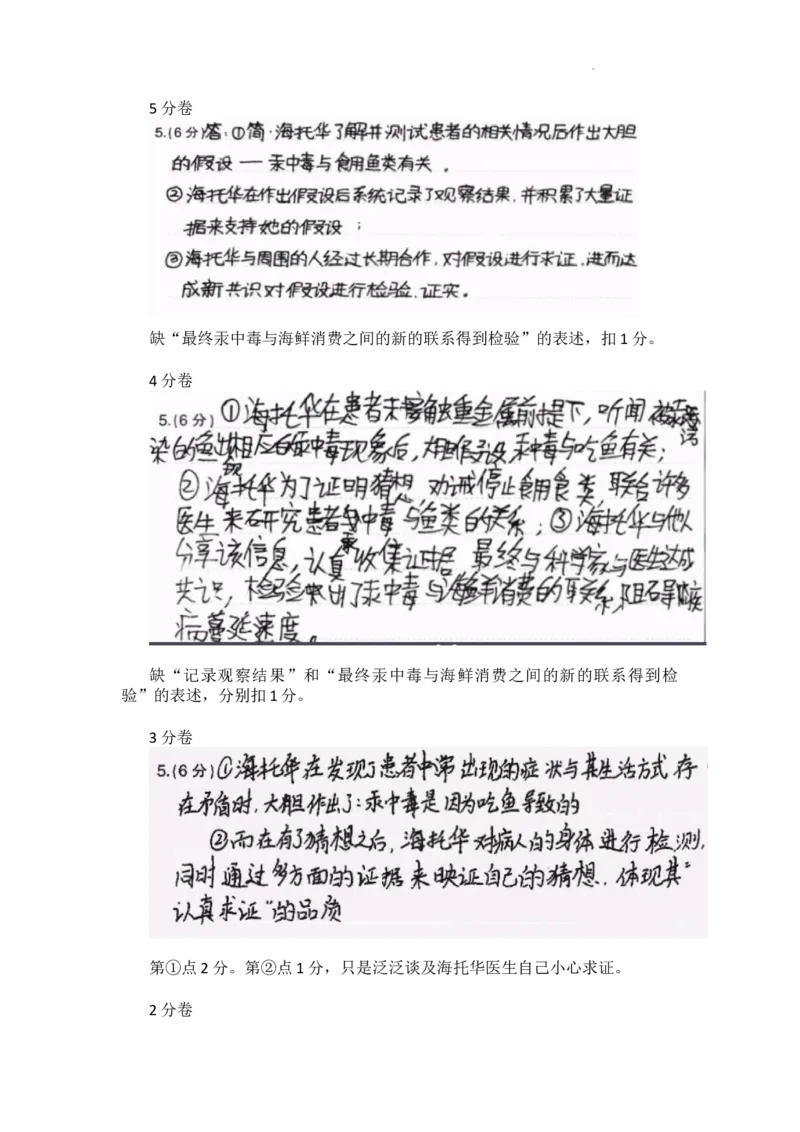 5 分卷
5.(6分)答:①简·海托华了解并测试患者的相关情况后作出大胆
的假设 — 汞中毒与食用鱼类有关 。
②海托华在作出假设后系统记录了观察结果,并积累了大量证
据来支持她的假设 ;
③海托华与周围的人经过长期合作,对假设进行求证,进而达
成新共识对假设进行检验、证实。
缺“最终汞中毒与海鲜消费之间的新的联系得到检验”的表述,扣 1 分。
4 分卷
5.(6分) ①海托华在患者未接触重金属前提下,听闻被汞污
染的鱼出现相应的汞中毒现象后,大胆假设汞中毒与吃鱼有关;
②海托华为了证明猜想,劝诫停止食用鱼类,联合许多
医生来研究患者汞中毒与鱼类的关系;③海托华与他人
分享该信息,认真收集证据,最终与科学家与医生达成
共识,检验出了汞中毒与海鲜消费的联系,阻碍
病蔓延速度。
缺“记录观察结果”和“最终汞中毒与海鲜消费之间的新的联系得到检
验”的表述,分别扣 1 分。
3 分卷
5.(6分)①海托华在发现了患者中常出现的症状与其生活方式存
在矛盾时,大胆作出了:汞中毒是因为吃鱼导致的
②而在有了猜想之后,海托华对病人的身体进行检测,
同时通过多方面的证据来映证自己的猜想,体现其“
认真求证”的品质
第①点 2 分。第②点 1 分,只是泛泛谈及海托华医生自己小心求证。
2 分卷